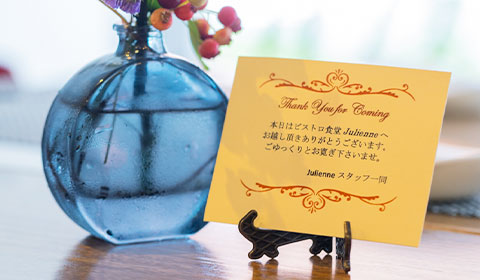 Thank You for Coming
本日はビストロ食堂 Julienne へ
お越し頂きありがとうございます。
ごゆっくりとお寛ぎ下さいませ。
Julienne スタッフ一同